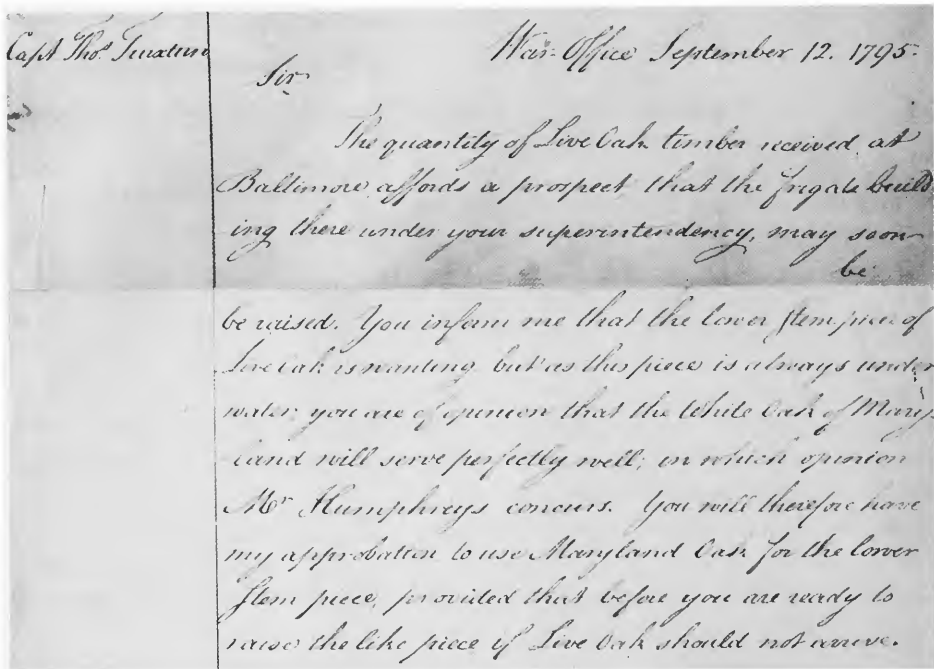 Capt Thos. Truxtun
War Office September 12. 1795.
Sir
The quantity of Live Oak timber received at
Baltimore affords a prospect that the frigate build
ing there under your superintendency, may soon
be
be raised. You inform me that the lower stem piece of
Live Oak is wanting but as this piece is always under
water, you are of opinion that the White Oak of Mary
land will serve perfectly well; in which opinion
Mr Humphreys concurs. You will therefore have
my approbation to use Maryland Oak for the lower
stem piece, provided that before you are ready to
raise the like piece of Live Oak should not arrive.